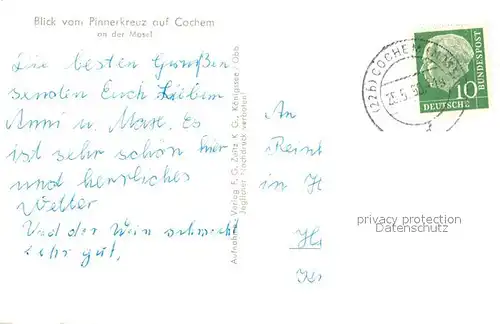 Blick vom Pinnerkreuz auf Cochem
an der Mosel
Die besten Grüßen
senden Euch Lieben
Anni u. Max. Es
ist sehr schön hier
und herrliches
Wetter
Und der Wein schmeckt
sehr gut.
Aufnahme u. Verlag F. G. Zeitz K G., Königssee / Obb.
Jeglicher Nachdruck verboten!
(22b) COCHEM
10
DEUTSCHE
BUNDESPOST
An
in H
privacy protection
Datenschutz